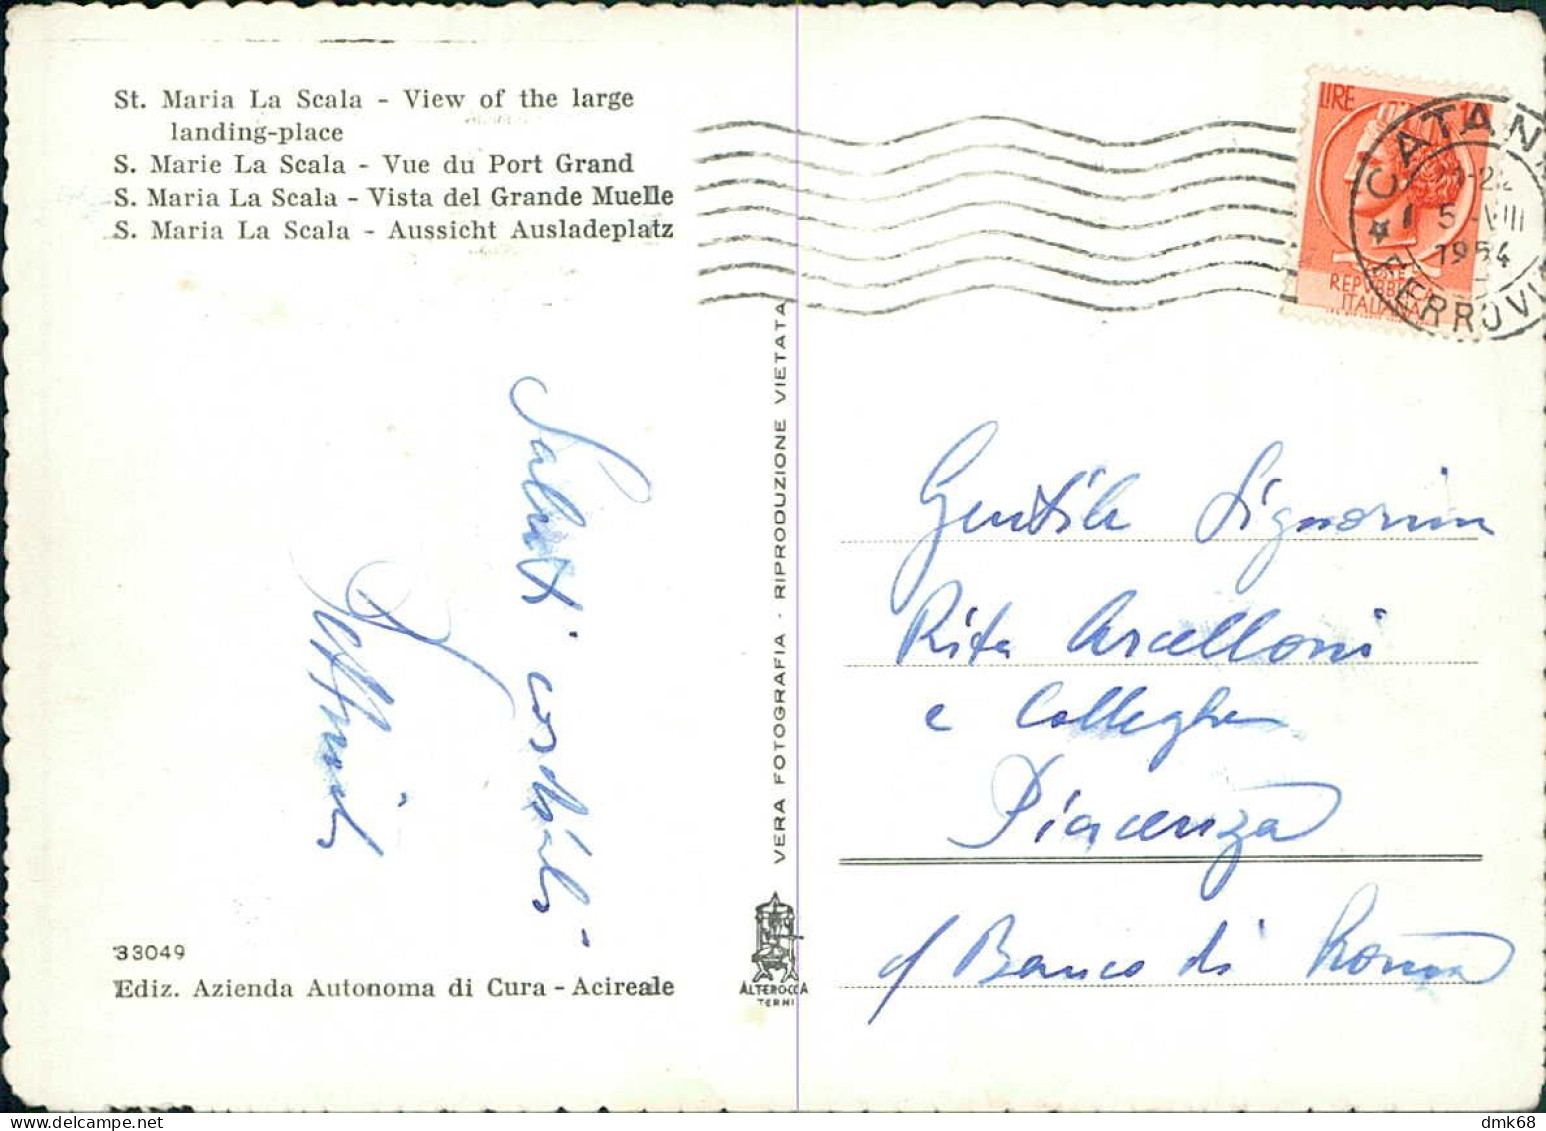 St. Maria La Scala - View of the large
landing-place
S. Marie La Scala - Vue du Port Grand
S. Maria La Scala - Vista del Grande Muelle
S. Maria La Scala - Aussicht Ausladeplatz
LIRE
REPVBBLICA
ITALIANA
CATAN
5 - VIII
1954
FERROVI
Saluti cordiali
VERA FOTOGRAFIA - RIPRODUZIONE VIETATA
Gentile Signorina
Rita Arcelloni
e Colleghe
Piacenza
c/ Banco di Roma
33049
Ediz. Azienda Autonoma di Cura - Acireale
ALTEROCCA
TERNI
dmk68